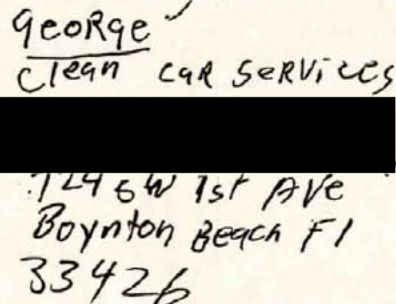 George
Clean car services
124 SW 1st Ave
Boynton Beach Fl
33426